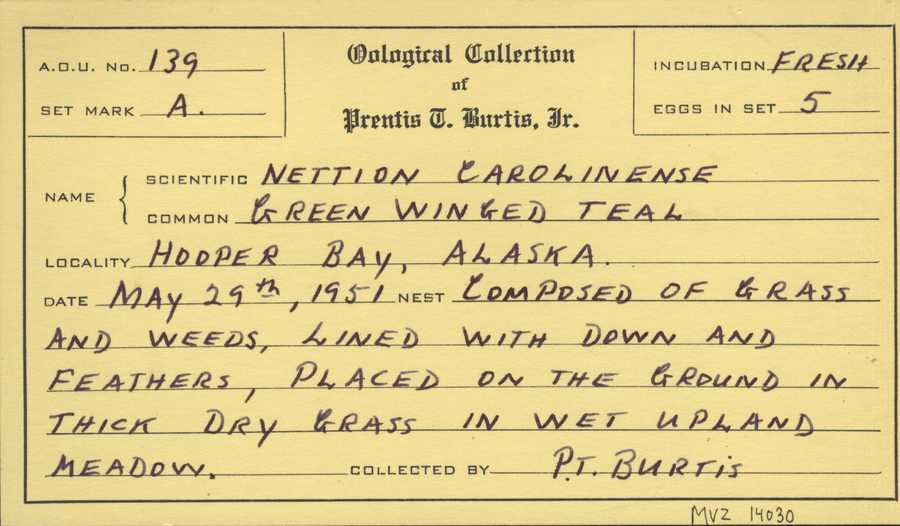 A.O.U. No. 139
SET MARK A.
Oological Collection
of
Prentis T. Burtis, Jr.
INCUBATION FRESH
EGGS IN SET 5
NAME
SCIENTIFIC NETTION CAROLINENSE
COMMON GREEN WINGED TEAL
LOCALITY HOOPER BAY, ALASKA.
DATE MAY 29th, 1951 NEST COMPOSED OF GRASS
AND WEEDS, LINED WITH DOWN AND
FEATHERS, PLACED ON THE GROUND IN
THICK DRY GRASS IN WET UPLAND
MEADOW. COLLECTED BY P.T. BURTIS
MVZ 14030